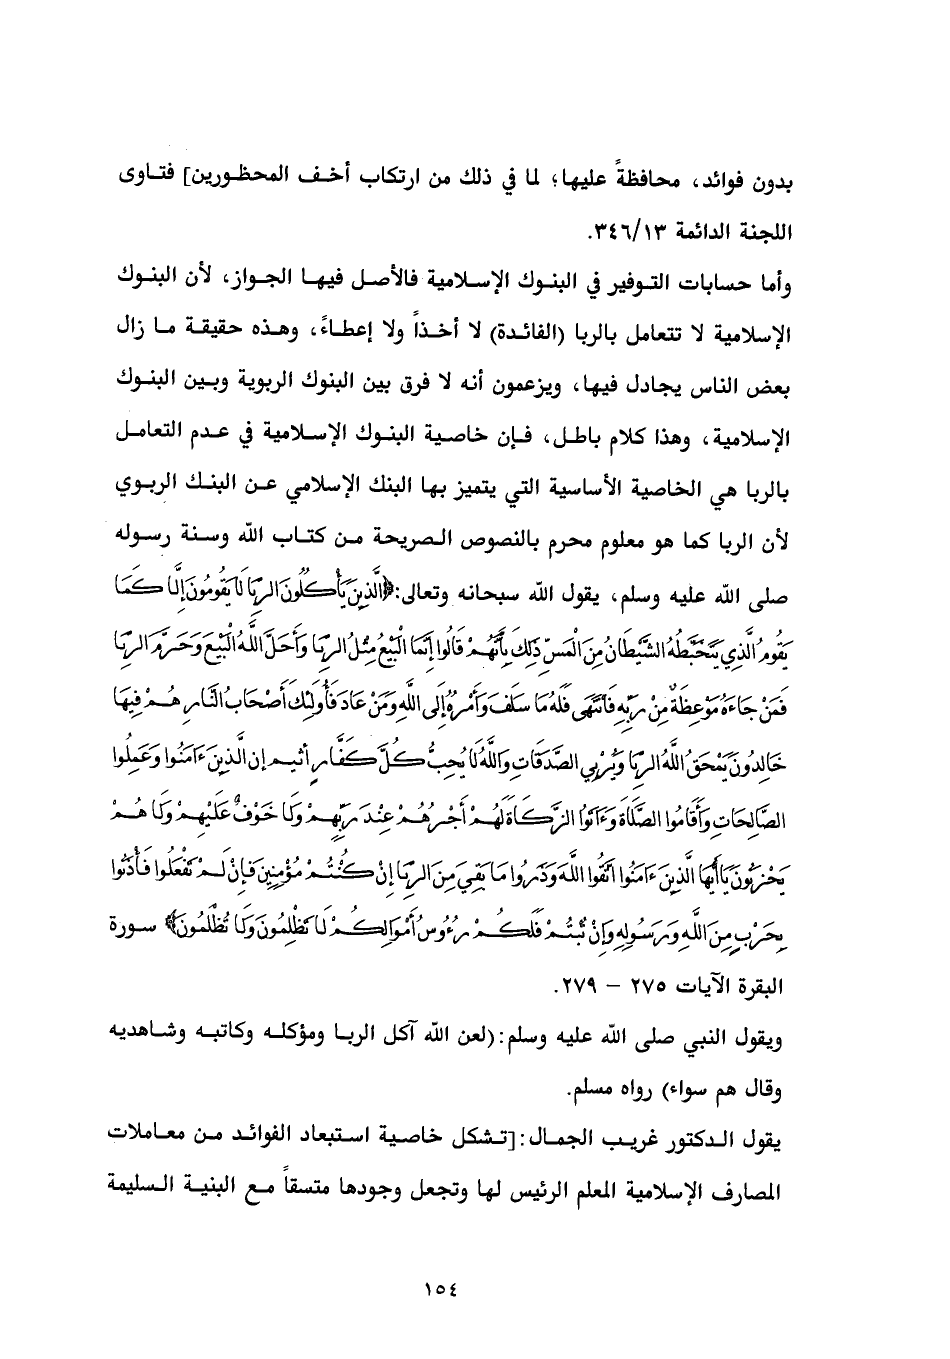 بدون فوائد، محافظةً عليها؛ لما في ذلك من ارتكاب أخف المحظورين] فتاوى
اللجنة الدائمة ٣٤٦/١٣.
وأما حسابات التوفير في البنوك الإسلامية فالأصل فيها الجواز، لأن البنوك
الإسلامية لا تتعامل بالربا (الفائدة) لا أخذاً ولا إعطاءً، وهذه حقيقة ما زال
بعض الناس يجادل فيها، ويزعمون أنه لا فرق بين البنوك الربوية وبين البنوك
الإسلامية، وهذا كلام باطل، فإن خاصية البنوك الإسلامية في عدم التعامل
بالربا هي الخاصية الأساسية التي يتميز بها البنك الإسلامي عن البنك الربوي
لأن الربا كما هو معلوم محرم بالنصوص الصريحة من كتاب الله وسنة رسوله
صلى الله عليه وسلم، يقول الله سبحانه وتعالى:﴿الَّذِينَ يَأْكُلُونَ الرِّبَا لَا يَقُومُونَ إِلَّا كَمَا
يَقُومُ الَّذِي يَتَخَبَّطُهُ الشَّيْطَانُ مِنَ الْمَسِّ ذَلِكَ بِأَنَّهُمْ قَالُوا إِنَّمَا الْبَيْعُ مِثْلُ الرِّبَا وَأَحَلَّ اللَّهُ الْبَيْعَ وَحَرَّمَ الرِّبَا
فَمَنْ جَاءَهُ مَوْعِظَةٌ مِنْ رَبِّهِ فَانْتَهَى فَلَهُ مَا سَلَفَ وَأَمْرُهُ إِلَى اللَّهِ وَمَنْ عَادَ فَأُولَئِكَ أَصْحَابُ النَّارِ هُمْ فِيهَا
خَالِدُونَ يَمْحَقُ اللَّهُ الرِّبَا وَيُرْبِي الصَّدَقَاتِ وَاللَّهُ لَا يُحِبُّ كُلَّ كَفَّارٍ أَثِيمٍ إِن الَّذِينَ ءَامَنُوا وَعَمِلُوا
الصَّالِحَاتِ وَأَقَامُوا الصَّلَاةَ وَءَاتَوُا الزَّكَاةَ لَهُمْ أَجْرُهُمْ عِنْدَ رَبِّهِمْ وَلَا خَوْفٌ عَلَيْهِمْ وَلَا هُمْ
يَحْزَنُونَ يَاأَيُّهَا الَّذِينَ ءَامَنُوا اتَّقُوا اللَّهَ وَذَرُوا مَا بَقِيَ مِنَ الرِّبَا إِنْ كُنْتُمْ مُؤْمِنِينَ فَإِنْ لَمْ تَفْعَلُوا فَأْذَنُوا
بِحَرْبٍ مِنَ اللَّهِ وَرَسُولِهِ وَإِنْ تُبْتُمْ فَلَكُمْ رُءُوسُ أَمْوَالِكُمْ لَا تَظْلِمُونَ وَلَا تُظْلَمُونَ﴾ سورة
البقرة الآيات ٢٧٥ – ٢٧٩.
ويقول النبي صلى الله عليه وسلم:(لعن الله آكل الربا ومؤكله وكاتبه وشاهديه
وقال هم سواء) رواه مسلم.
يقول الدكتور غريب الجمال:[تشكل خاصية استبعاد الفوائد من معاملات
المصارف الإسلامية المعلم الرئيس لها وتجعل وجودها متسقاً مع البنية السليمة
١٥٤